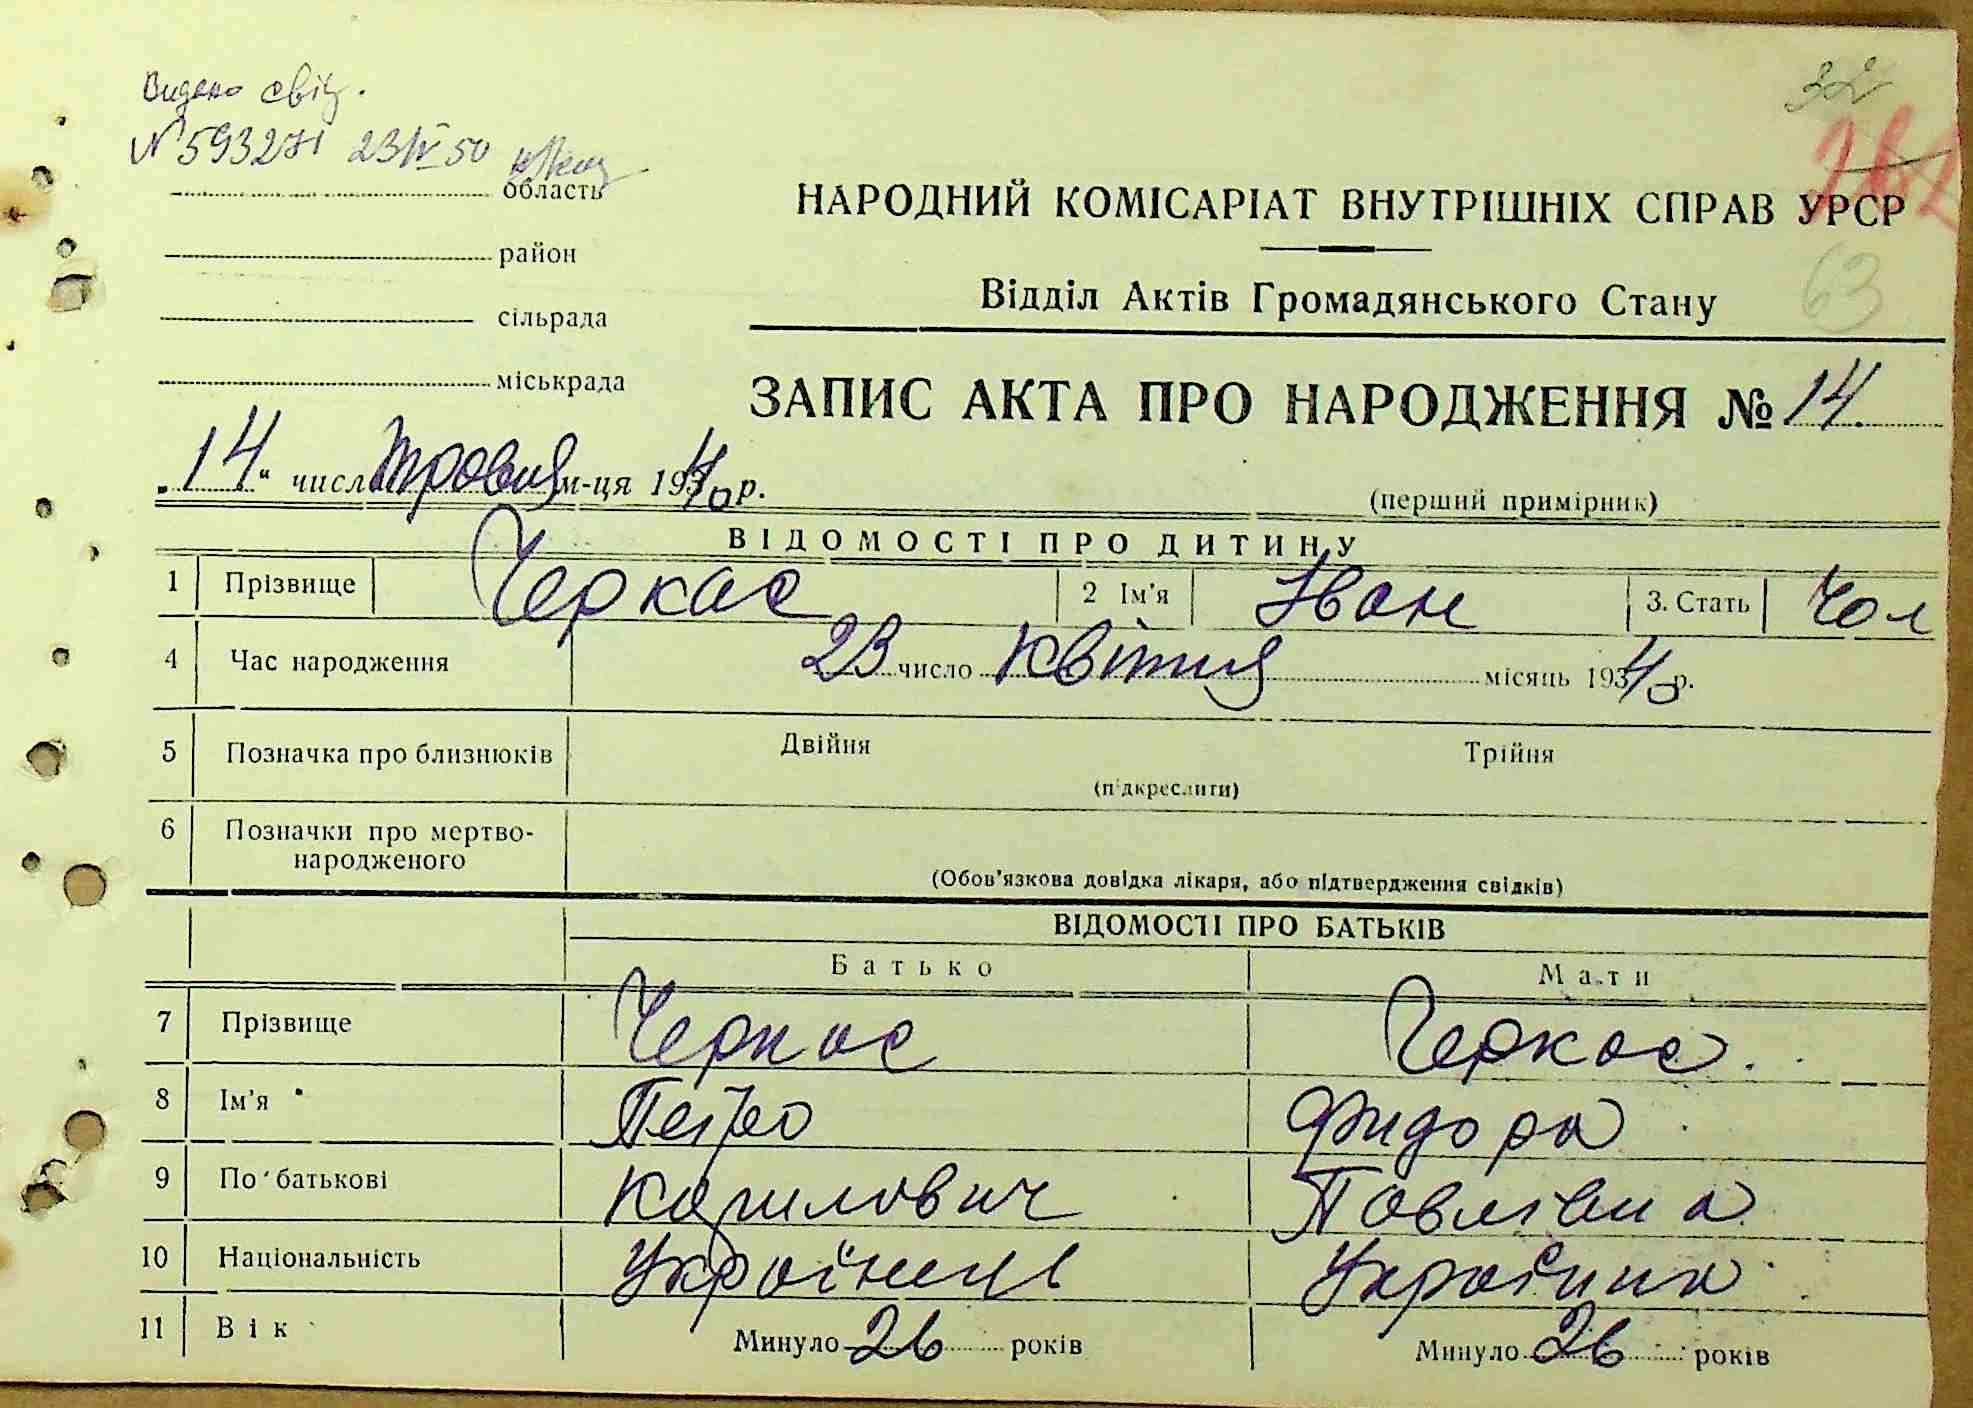 32
Видано свід.
№ 593271 23/IV 50
282
область
НАРОДНИЙ КОМІСАРІАТ ВНУТРІШНІХ СПРАВ УРСР
район
Відділ Актів Громадянського Стану
63
сільрада
міськрада
ЗАПИС АКТА ПРО НАРОДЖЕННЯ № 14.
„14“ числа травня м-ця 1940 р.
(перший примірник)
ВІДОМОСТІ ПРО ДИТИНУ
1 Прізвище Черкас 2 Ім'я Іван 3. Стать Чол
4 Час народження 23 число квітня місяць 1940 р.
5 Позначка про близнюків Двійня Трійня
(підкреслити)
6 Позначки про мертво-
народженого
(Обов'язкова довідка лікаря, або підтвердження свідків)
ВІДОМОСТІ ПРО БАТЬКІВ
Батько Мати
7 Прізвище Черкас Черкас.
8 Ім'я Петро Фидора
9 По батькові Карилович Павлівна
10 Національність Українець Українка
11 Вік Минуло 26 років Минуло 26 років